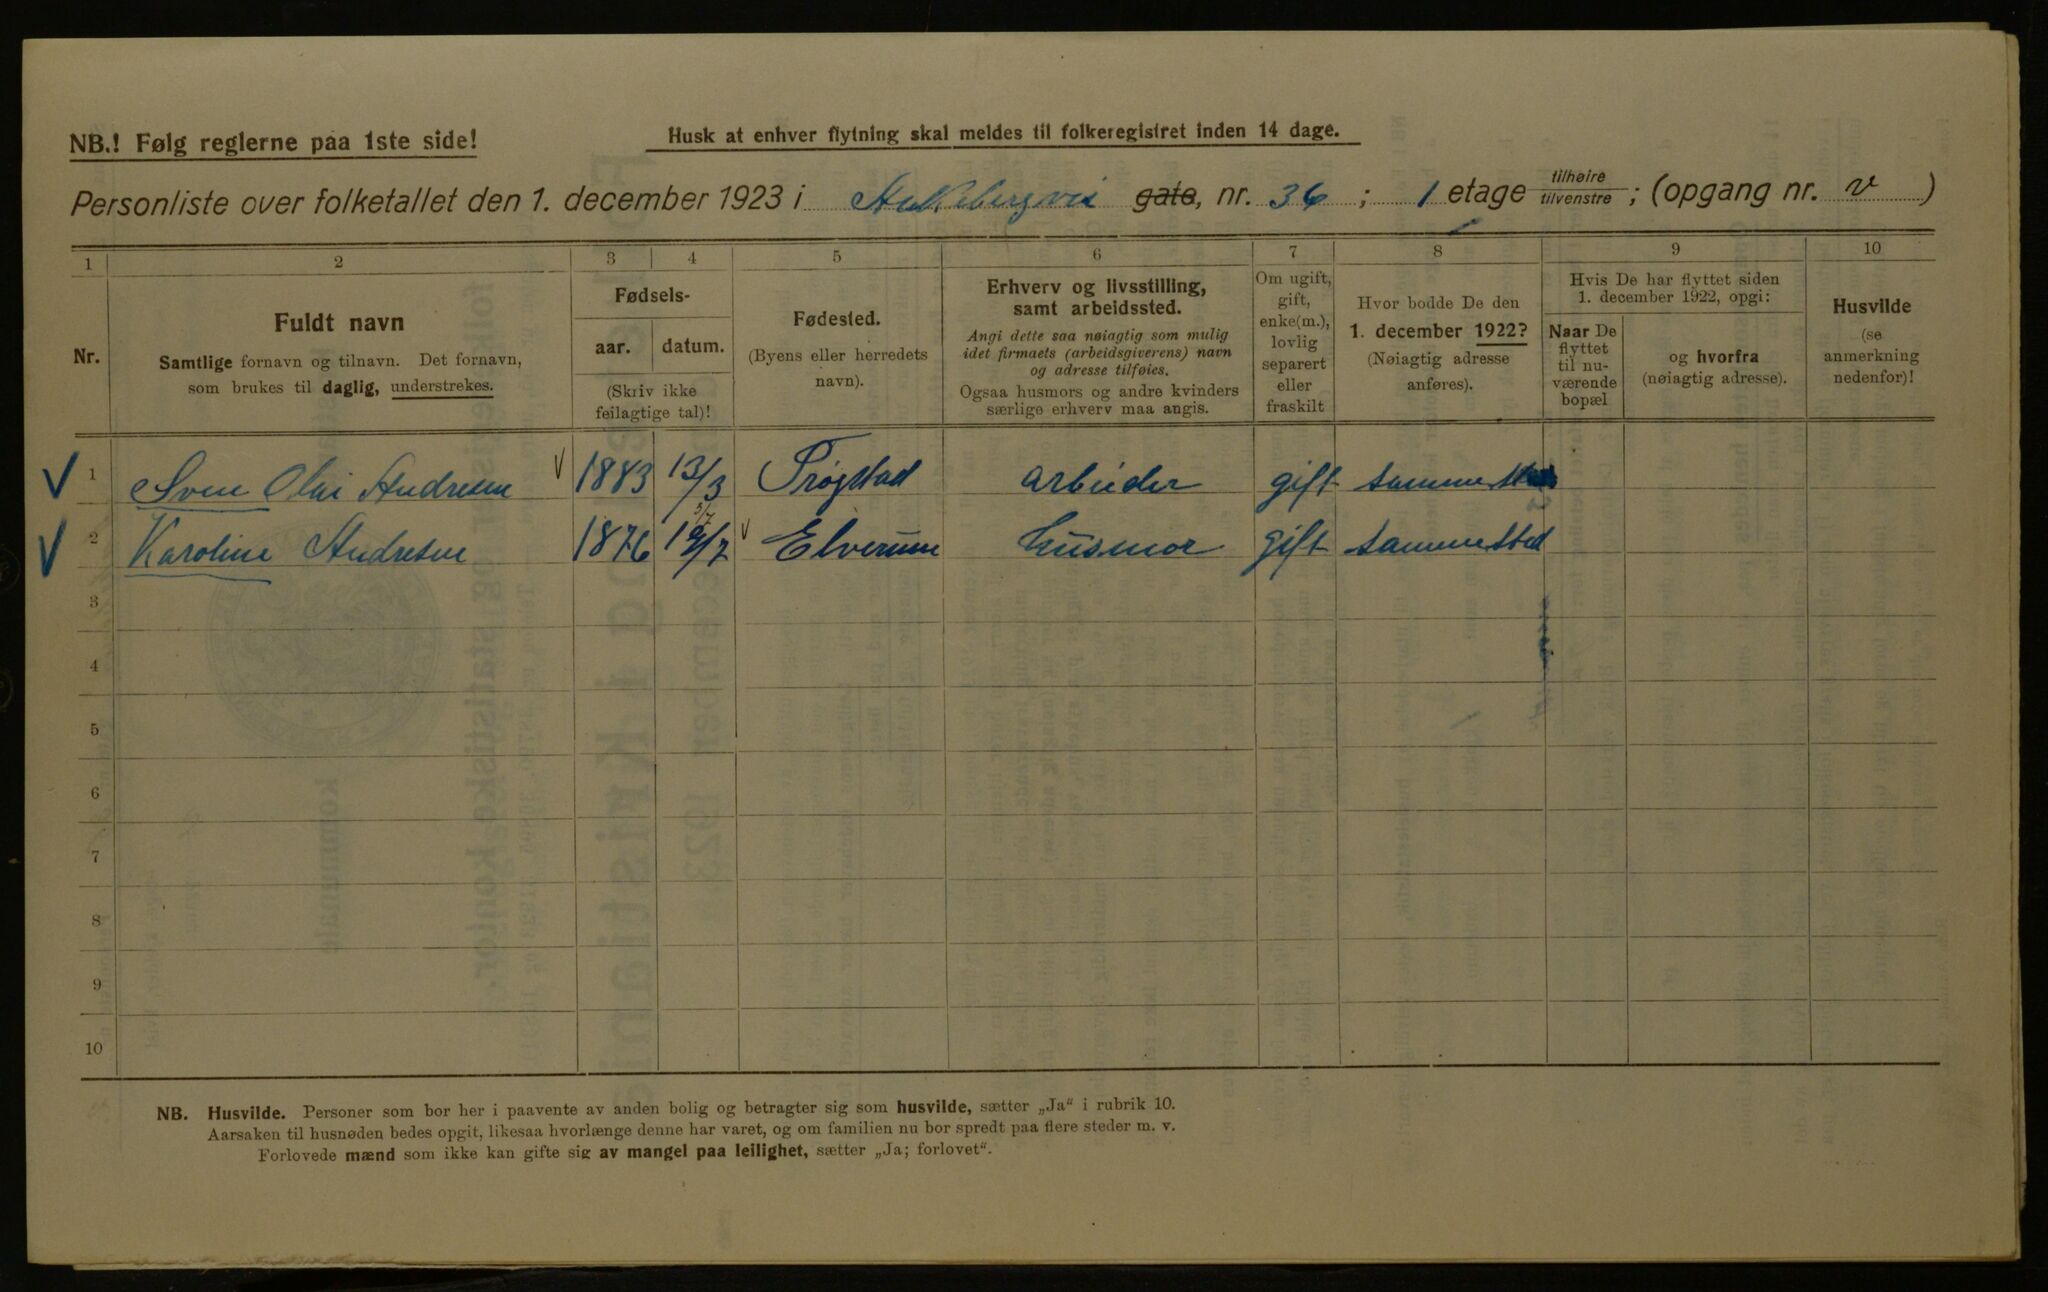 NB.! Følg reglerne paa 1ste side!
Husk at enhver flytning skal meldes til folkeregistret inden 14 dage.
Personliste over folketallet den 1. december 1923 i Ankebergvei gate, nr. 36; 1 etage tilhøire/tilvenstre; (opgang nr. v)
1 2 3 4 5 6 7 8 9 10
Nr.
Fuldt navn
Samtlige fornavn og tilnavn. Det fornavn,
som brukes til daglig, understrekes.
Fødsels-
aar. datum.
(Skriv ikke
feilagtige tal)!
Fødested.
(Byens eller herredets
navn).
Erhverv og livsstilling,
samt arbeidssted.
Angi dette saa nøiagtig som mulig
idet firmaets (arbeidsgiverens) navn
og adresse tilføies.
Ogsaa husmors og andre kvinders
særlige erhverv maa angis.
Om ugift,
gift,
enke(m.),
lovlig
separert
eller
fraskilt
Hvor bodde De den
1. december 1922?
(Nøiagtig adresse
anføres).
Hvis De har flyttet siden
1. december 1922, opgi:
Naar De
flyttet
til nu-
værende
bopæl
og hvorfra
(nøiagtig adresse).
Husvilde
(se
anmerkning
nedenfor)!
1 Sven Olai Andresen 1883 13/3 Trøgstad arbeider gift samme sted
5/7
2 Karoline Andresen 1876 Elverum husmor gift samme sted
3
4
5
6
7
8
9
10
NB. Husvilde. Personer som bor her i paavente av anden bolig og betragter sig som husvilde, sætter „Ja“ i rubrik 10.
Aarsaken til husnøden bedes opgit, likesaa hvorlænge denne har varet, og om familien nu bor spredt paa flere steder m. v.
Forlovede mænd som ikke kan gifte sig av mangel paa leilighet, sætter „Ja; forlovet“.